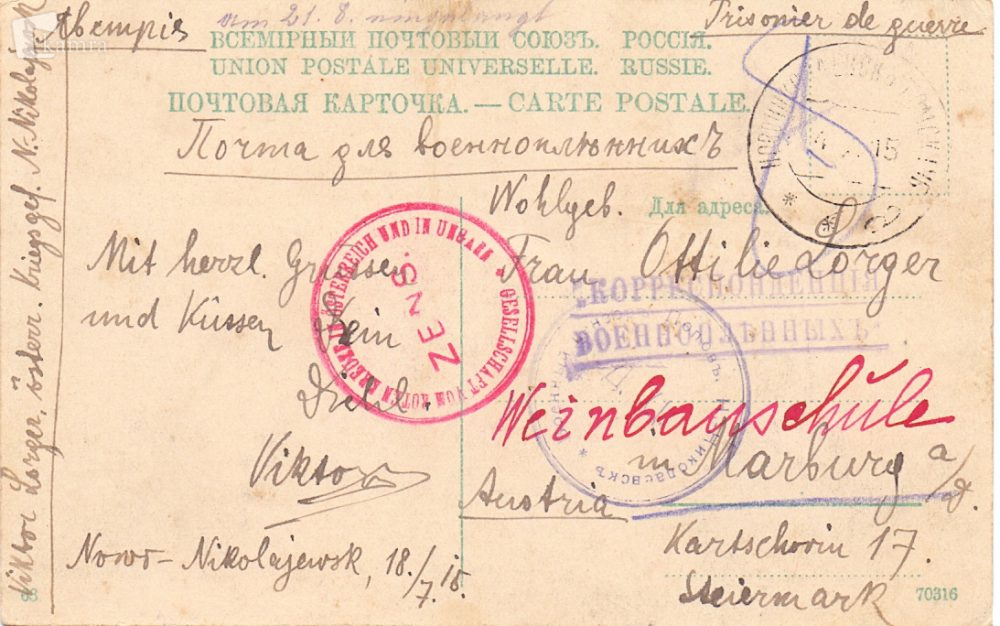 am 21. 8. eingelangt
Австрія
Prisonier de guerre
ВСЕМІРНЫЙ ПОЧТОВЫЙ СОЮЗЪ. РОССІЯ.
UNION POSTALE UNIVERSELLE. RUSSIE.
ПОЧТОВАЯ КАРТОЧКА. — CARTE POSTALE.
Почта для военноплѣннихЪ
Mit herzl. Grüssen
und Küssen Dein
Dich l.
Viktor
Nowo-Nikolajewsk, 18./7.15.
Viktor Lorger, österr. Kriegsgef. N. Nikolajewsk
GESELLSCHAFT VOM ROTEN KREUZE IN ÖSTERREICH UND IN UNGARN
ZENS.
Wohlgeb.
Для адреса.
Frau Ottilie Lorger
КОРРЕСПОНДЕНЦІЯ
ВОЕННОПЛѢННЫХЪ.
Weinbauschule
in Marburg a/d.
Austria
Kartschovin 17.
Steiermark
15
70316
kamra